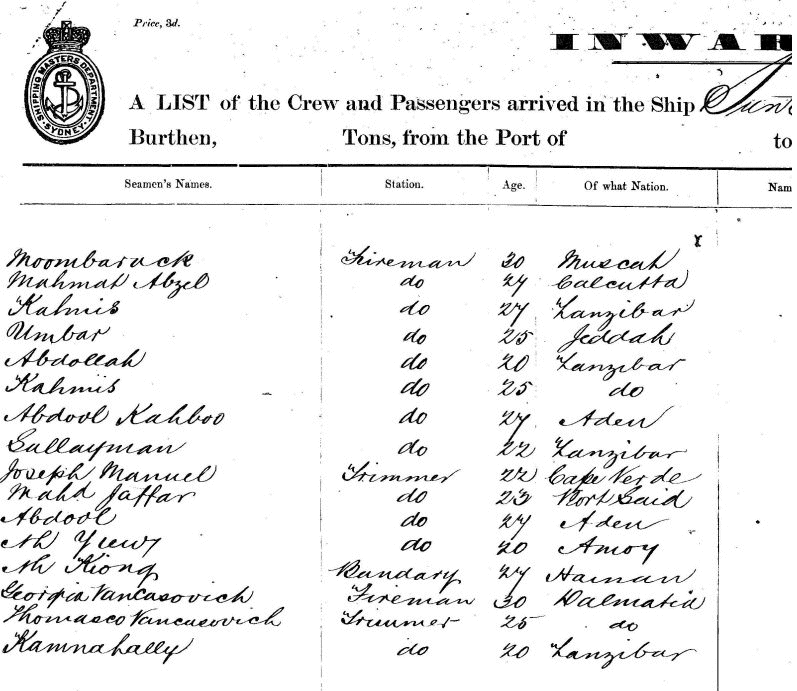 Price, 3d.
INWAR
SHIPPING MASTERS DEPARTMENT. SYDNEY.
A LIST of the Crew and Passengers arrived in the Ship
Burthen, Tons, from the Port of to
Seamen's Names. Station. Age. Of what Nation. Nam
Moombaruck Fireman 30 Muscat
Mahmat Abzel do 24 Calcutta
Kahmis do 27 Zanzibar
Umbar do 25 Jeddah
Abdollah do 20 Zanzibar
Kahmis do 25 do
Abdool Kahboo do 27 Aden
Sullayman do 22 Zanzibar
Joseph Manuel Trimmer 22 Cape Verde
Mahd Jaffar do 23 Port Said
Abdool do 27 Aden
Ah Yuew do 20 Amoy
Ah Kiong Bandary 27 Hainan
Georgia Vancasovich Fireman 30 Dalmatia
Thomasco Vancasovich Trimmer 25 do
Kamnahally do 20 Zanzibar